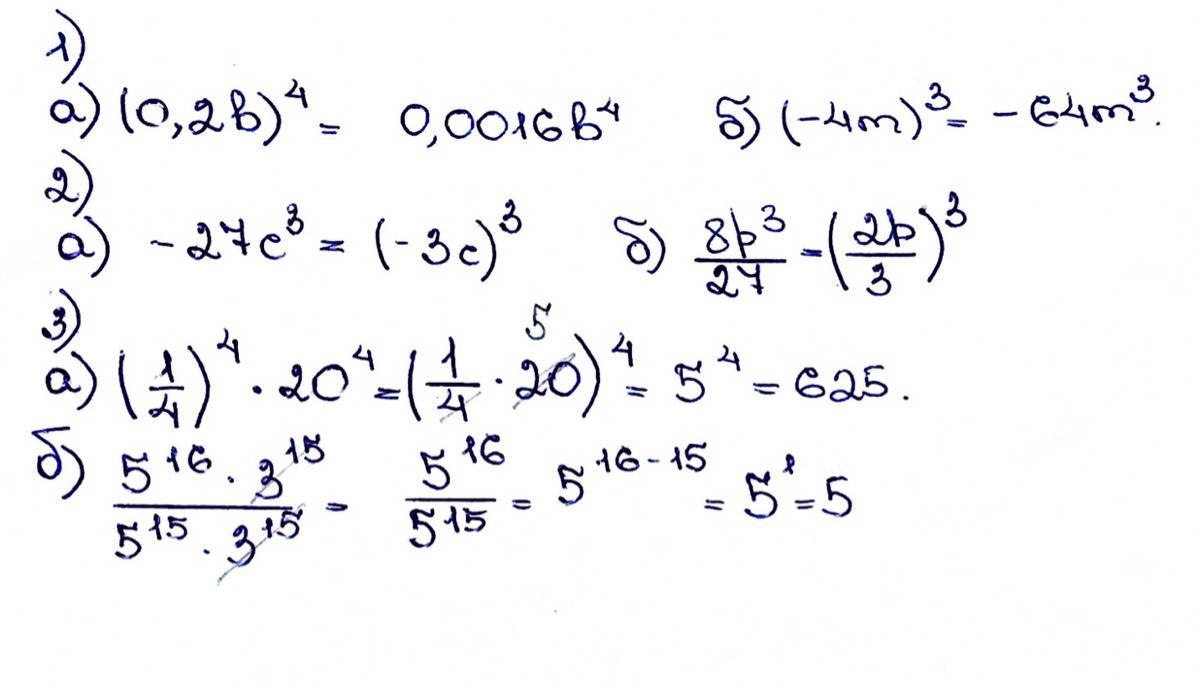 1)
а) (0,2b)⁴ = 0,0016b⁴ б) (-4m)³ = -64m³.
2)
а) -27c³ = (-3c)³ б) 8b³/27 = (2b/3)³
3)
а) (1/4)⁴ · 20⁴ = (1/4 · 20)⁴ = 5⁴ = 625.
5
б) 5¹⁶ · 3¹⁵ / 5¹⁵ · 3¹⁵ = 5¹⁶/5¹⁵ = 5¹⁶⁻¹⁵ = 5¹ = 5